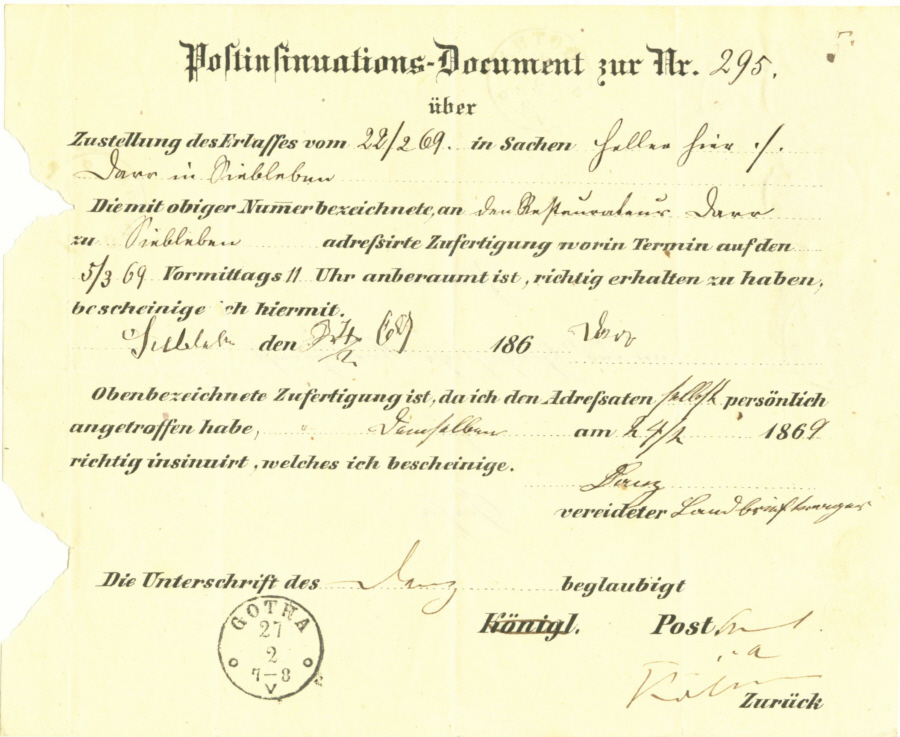 Postinsinuations-Document zur Nr. 295.
über
Zustellung des Erlasses vom 22/2 69. in Sachen Heller hier ./.
Darr in Siebleben
Die mit obiger Num̅er bezeichnete, an den Restaurateur Darr
zu Siebleben adreßirte Zufertigung worin Termin auf den
5/3 69 Vormittags 11 Uhr anberaumt ist, richtig erhalten zu haben,
bescheinige ich hiermit.
Siebleben den 24/2 69 186 Darr
Obenbezeichnete Zufertigung ist, da ich den Adreßaten selbst persönlich
angetroffen habe, " Demselben am 24/2 1869
richtig insinuirt, welches ich bescheinige.
Danz
vereideter Landbriefträger
Die Unterschrift des Danz beglaubigt
Königl. Post.
Zurück
GOTHA
27
2
7-8
V